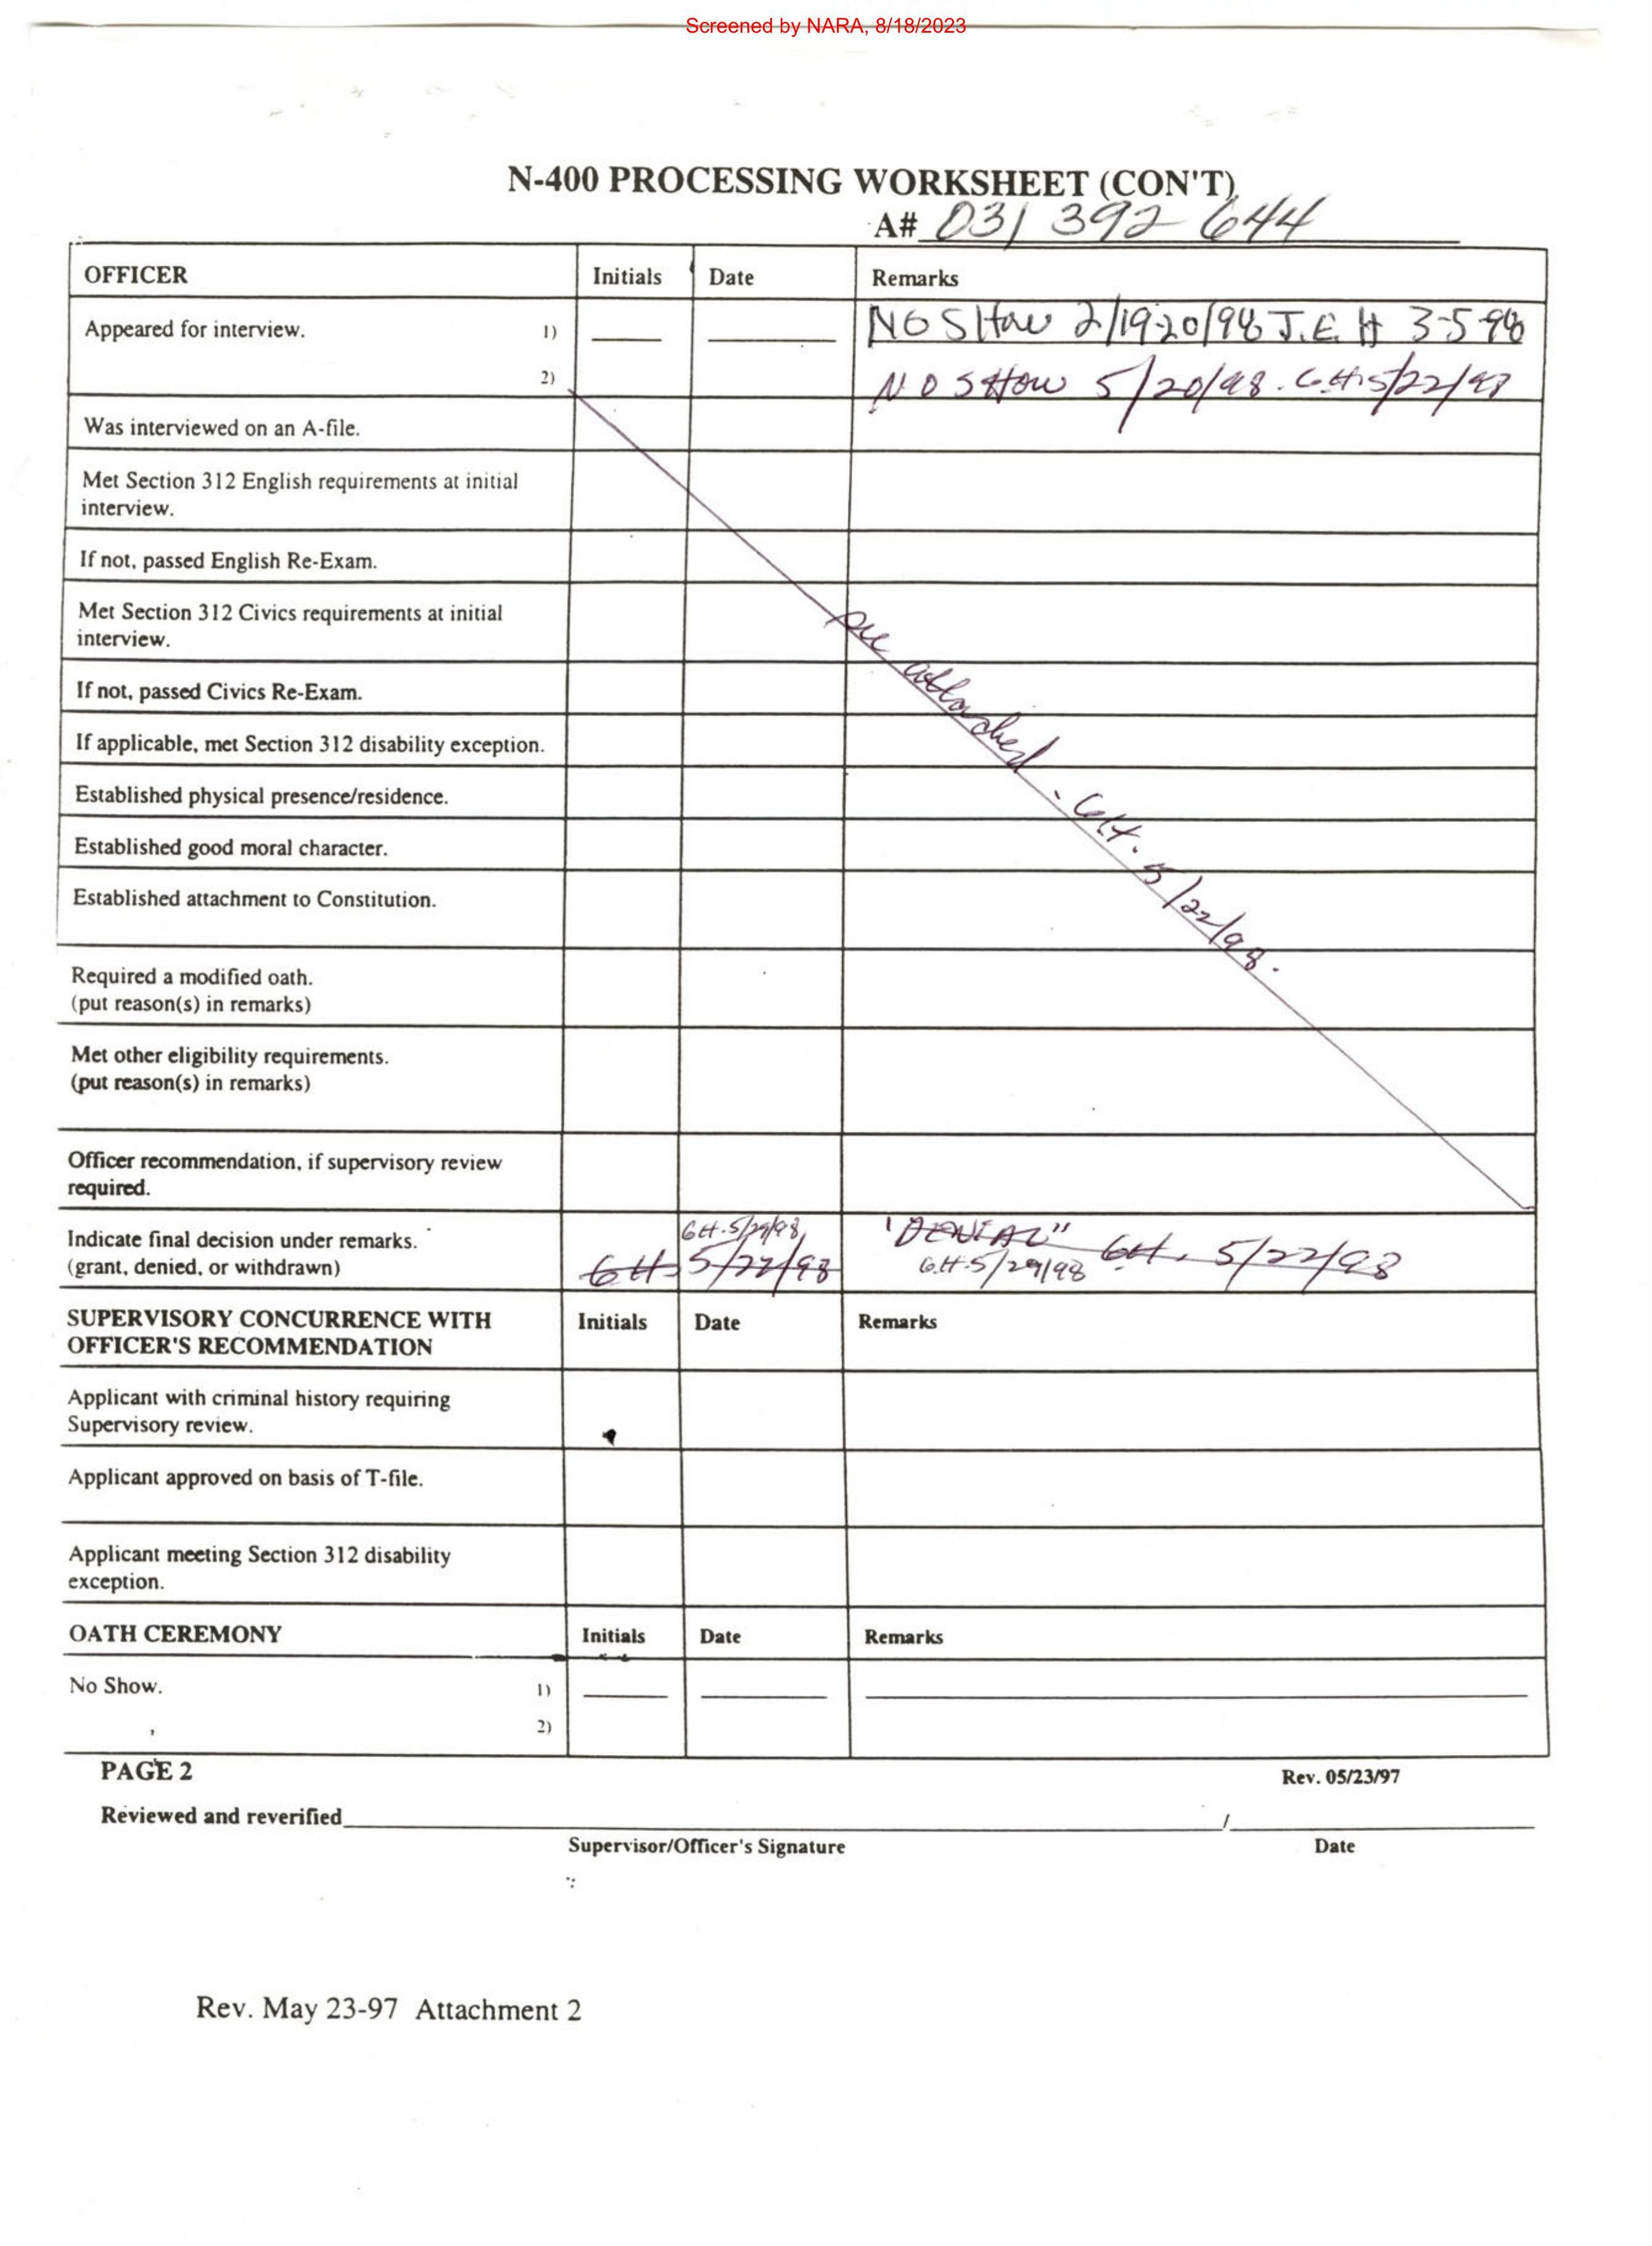 Screened by NARA, 8/18/2023
N-400 PROCESSING WORKSHEET (CON'T)
A# 031 392 644
OFFICER Initials Date Remarks
Appeared for interview. 1) NO SHow 2/19-20/98 J.E.H 3-5-98
2) NO SHow 5/20/98. G.H. 5/22/98
Was interviewed on an A-file.
Met Section 312 English requirements at initial
interview.
If not, passed English Re-Exam.
Met Section 312 Civics requirements at initial
interview.
see attached - G.H. 5/22/98.
If not, passed Civics Re-Exam.
If applicable, met Section 312 disability exception.
Established physical presence/residence.
Established good moral character.
Established attachment to Constitution.
Required a modified oath.
(put reason(s) in remarks)
Met other eligibility requirements.
(put reason(s) in remarks)
Officer recommendation, if supervisory review
required.
Indicate final decision under remarks. G.H. 5/29/98 "DENIAL" G.H. 5/22/98
(grant, denied, or withdrawn) G.H. 5/22/98 G.H. 5/29/98
SUPERVISORY CONCURRENCE WITH Initials Date Remarks
OFFICER'S RECOMMENDATION
Applicant with criminal history requiring
Supervisory review.
Applicant approved on basis of T-file.
Applicant meeting Section 312 disability
exception.
OATH CEREMONY Initials Date Remarks
No Show. 1)
2)
PAGE 2 Rev. 05/23/97
Reviewed and reverified /
Supervisor/Officer's Signature Date
Rev. May 23-97 Attachment 2